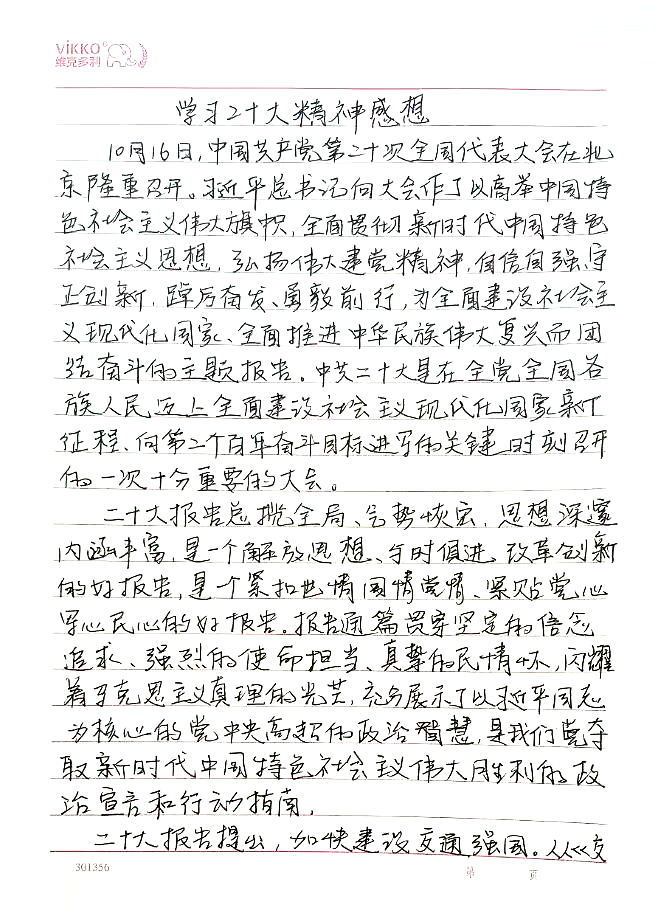 ViKKO®
维克多利
学习二十大精神感想
10月16日,中国共产党第二十次全国代表大会在北
京隆重召开。习近平总书记向大会作了以高举中国特
色社会主义伟大旗帜,全面贯彻新时代中国特色
社会主义思想,弘扬伟大建党精神,自信自强、守
正创新,踔厉奋发、勇毅前行,为全面建设社会主
义现代化国家、全面推进中华民族伟大复兴而团
结奋斗的主题报告。中共二十大是在全党全国各
族人民迈上全面建设社会主义现代化国家新
征程、向第二个百年奋斗目标进军的关键时刻召开
的一次十分重要的大会。
二十大报告总揽全局、气势恢宏,思想深邃
内涵丰富,是一个解放思想、与时俱进、改革创新
的好报告,是个紧扣世情国情党情、紧贴党心
军心民心的好报告。报告通篇贯穿坚定的信念
追求、强烈的使命担当、真挚的民情怀,闪耀
着马克思主义真理的光芒,充分展示了以习近平同志
为核心的党中央高超的政治智慧,是我们党夺
取新时代中国特色社会主义伟大胜利的政
治宣言和行动指南。
二十大报告提出,加快建设交通强国。从<<交
301356 第 页